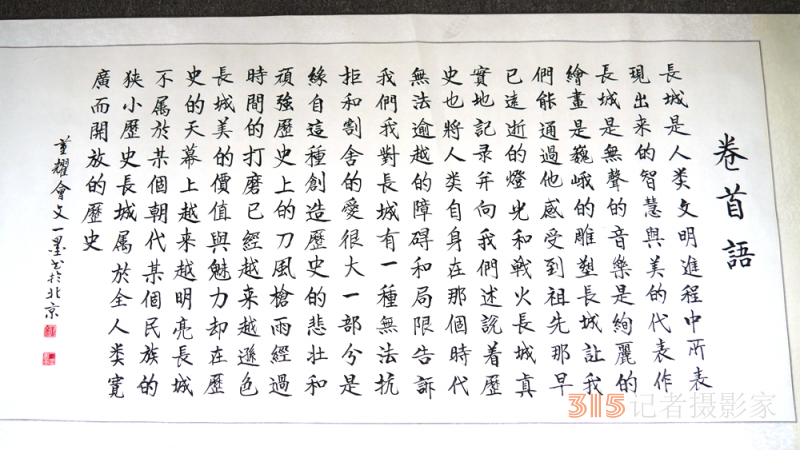 卷首語
長城是人类文明進程中所表
現出来的智慧與美的代表作
長城是無聲的音樂是絢麗的
繪畫是巍峨的雕塑長城讓我
們能通過他感受到祖先那早
已遠逝的燈光和戰火長城真
實地記录并向我們述説着歷
史也將人类自身在那個時代
無法逾越的障碍和局限告訴
我們我對長城有一種無法抗
拒和割舍的愛很大一部分是
緣自這種創造歷史的悲壮和
頑強歷史上的刀風槍雨經過
時間的打磨已經越来越遜色
長城美的價值與魅力却在歷
史的天幕上越来越明亮長城
不属於某個朝代某個民族的
狹小歷史長城属於全人类寬
廣而開放的歷史
董耀會文一墨书於北京
315记者摄影家